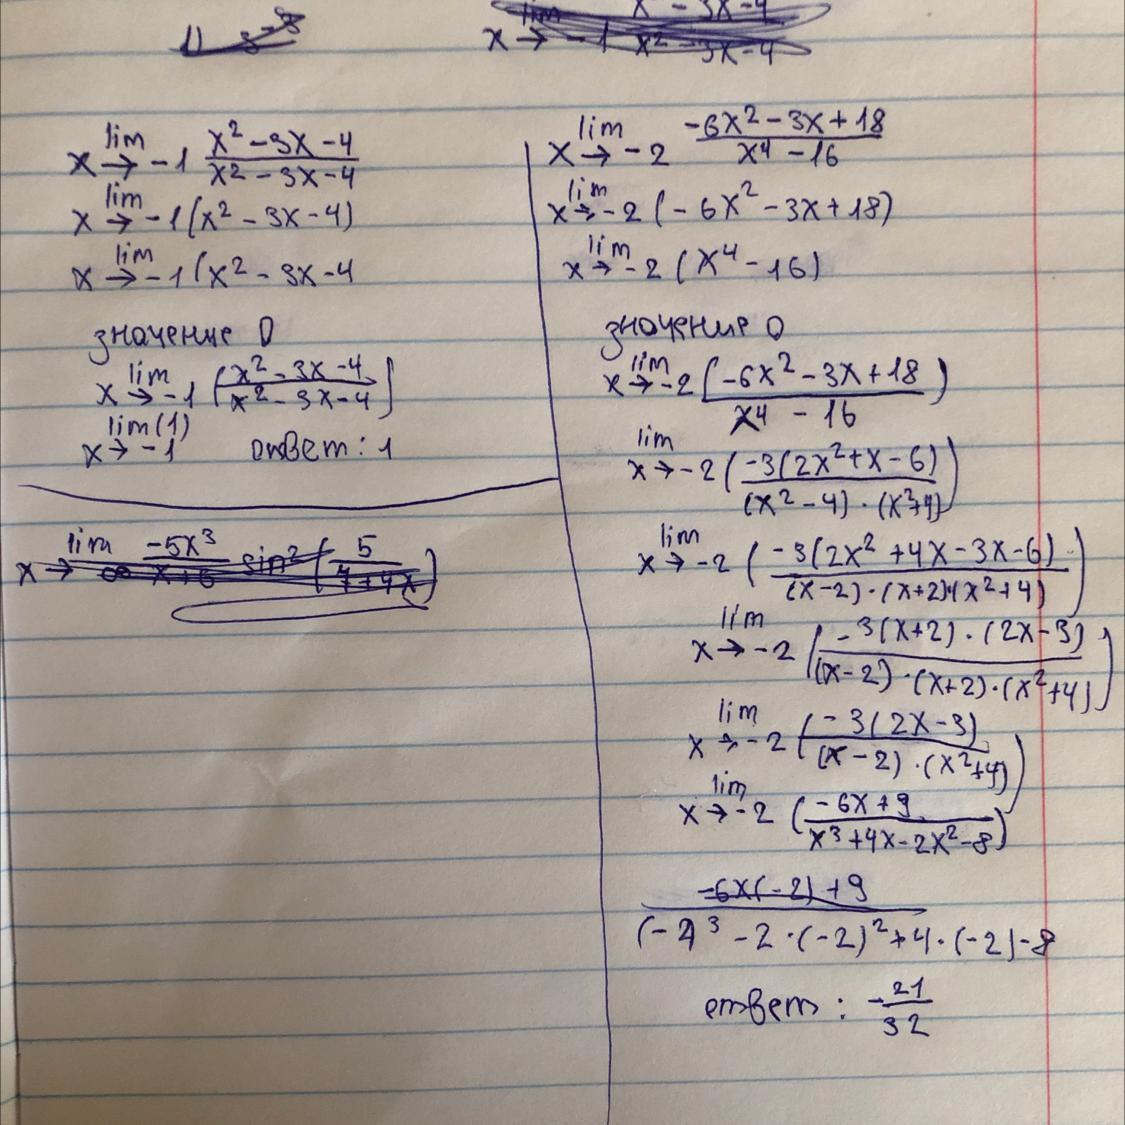 lim x→-1 x²-3x-4 / x²-3x-4
lim x→-1 (x²-3x-4)
lim x→-1 (x²-3x-4
значение 0
lim x→-1 (x²-3x-4 / x²-3x-4)
lim(1) x→-1 ответ: 1
lim x→-2 -6x²-3x+18 / x⁴-16
lim x→-2 (-6x²-3x+18)
lim x→-2 (x⁴-16)
значение 0
lim x→-2 (-6x²-3x+18 / x⁴-16)
lim x→-2 (-3(2x²+x-6) / (x²-4)·(x²+4))
lim x→-2 (-3(2x²+4x-3x-6) / (x-2)·(x+2)(x²+4))
lim x→-2 (-3(x+2)·(2x-3) / (x-2)·(x+2)·(x²+4))
lim x→-2 (-3(2x-3) / (x-2)·(x²+4))
lim x→-2 (-6x+9 / x³+4x-2x²-8)
-6x(-2)+9 / (-2³-2·(-2)²+4·(-2)-8
ответ: -21/32